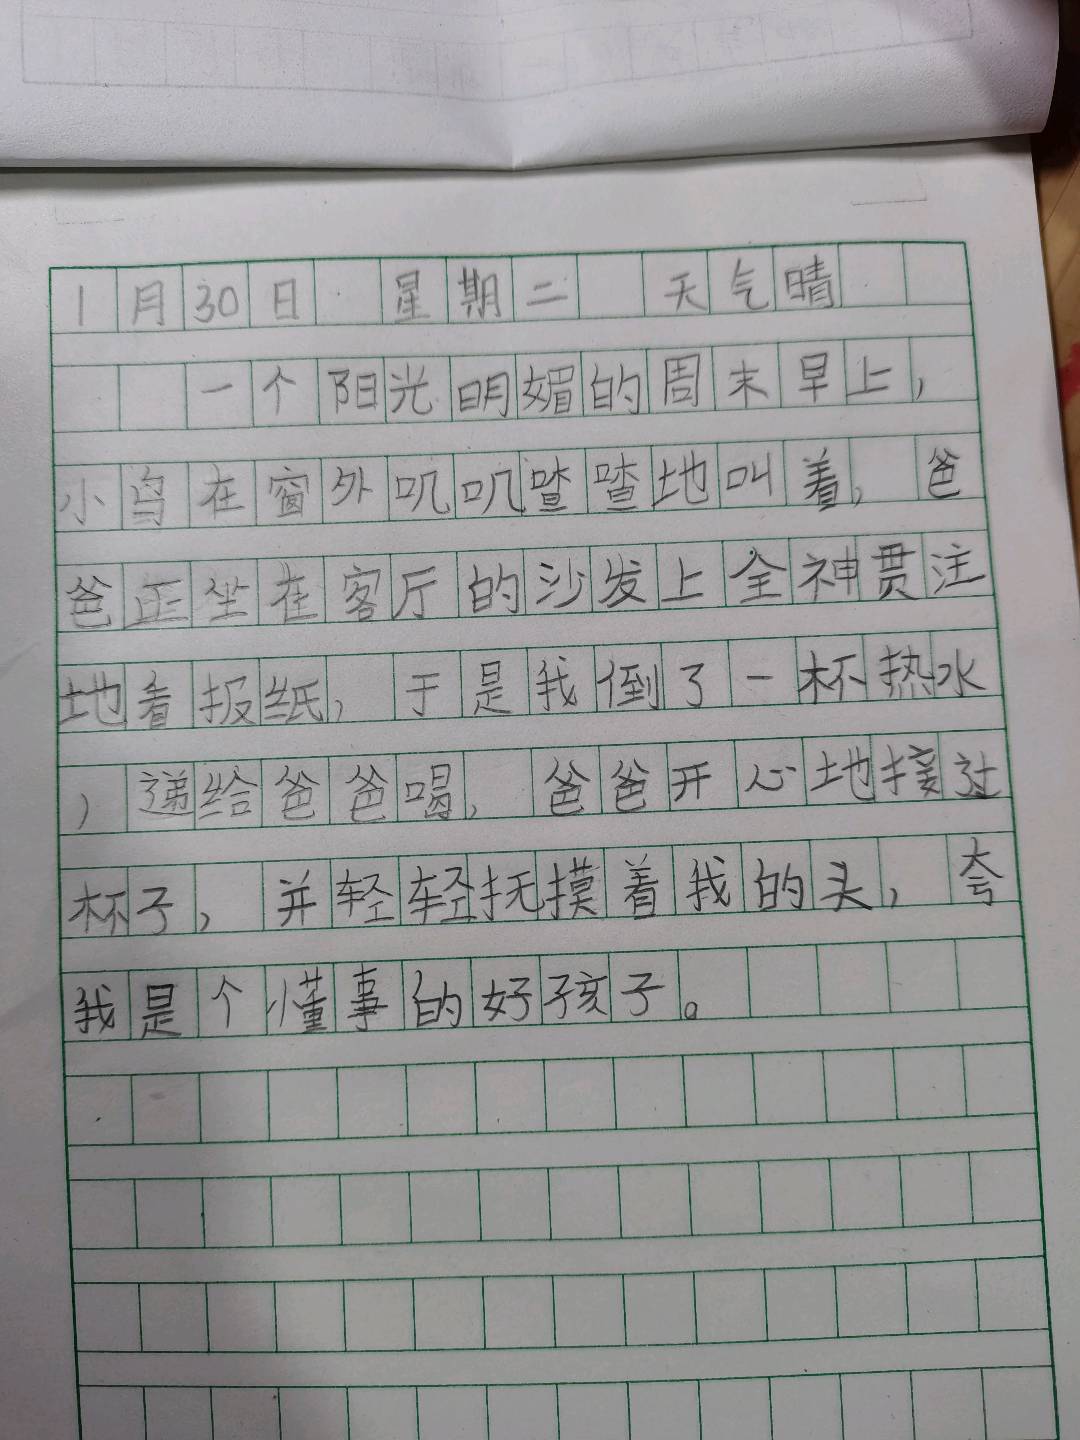 1月30日 星期二 天气晴
一个阳光明媚的周末早上，
小鸟在窗外叽叽喳喳地叫着，爸
爸正坐在客厅的沙发上全神贯注
地看报纸，于是我倒了一杯热水
，递给爸爸喝，爸爸开心地接过
杯子，并轻轻抚摸着我的头，夸
我是个懂事的好孩子。